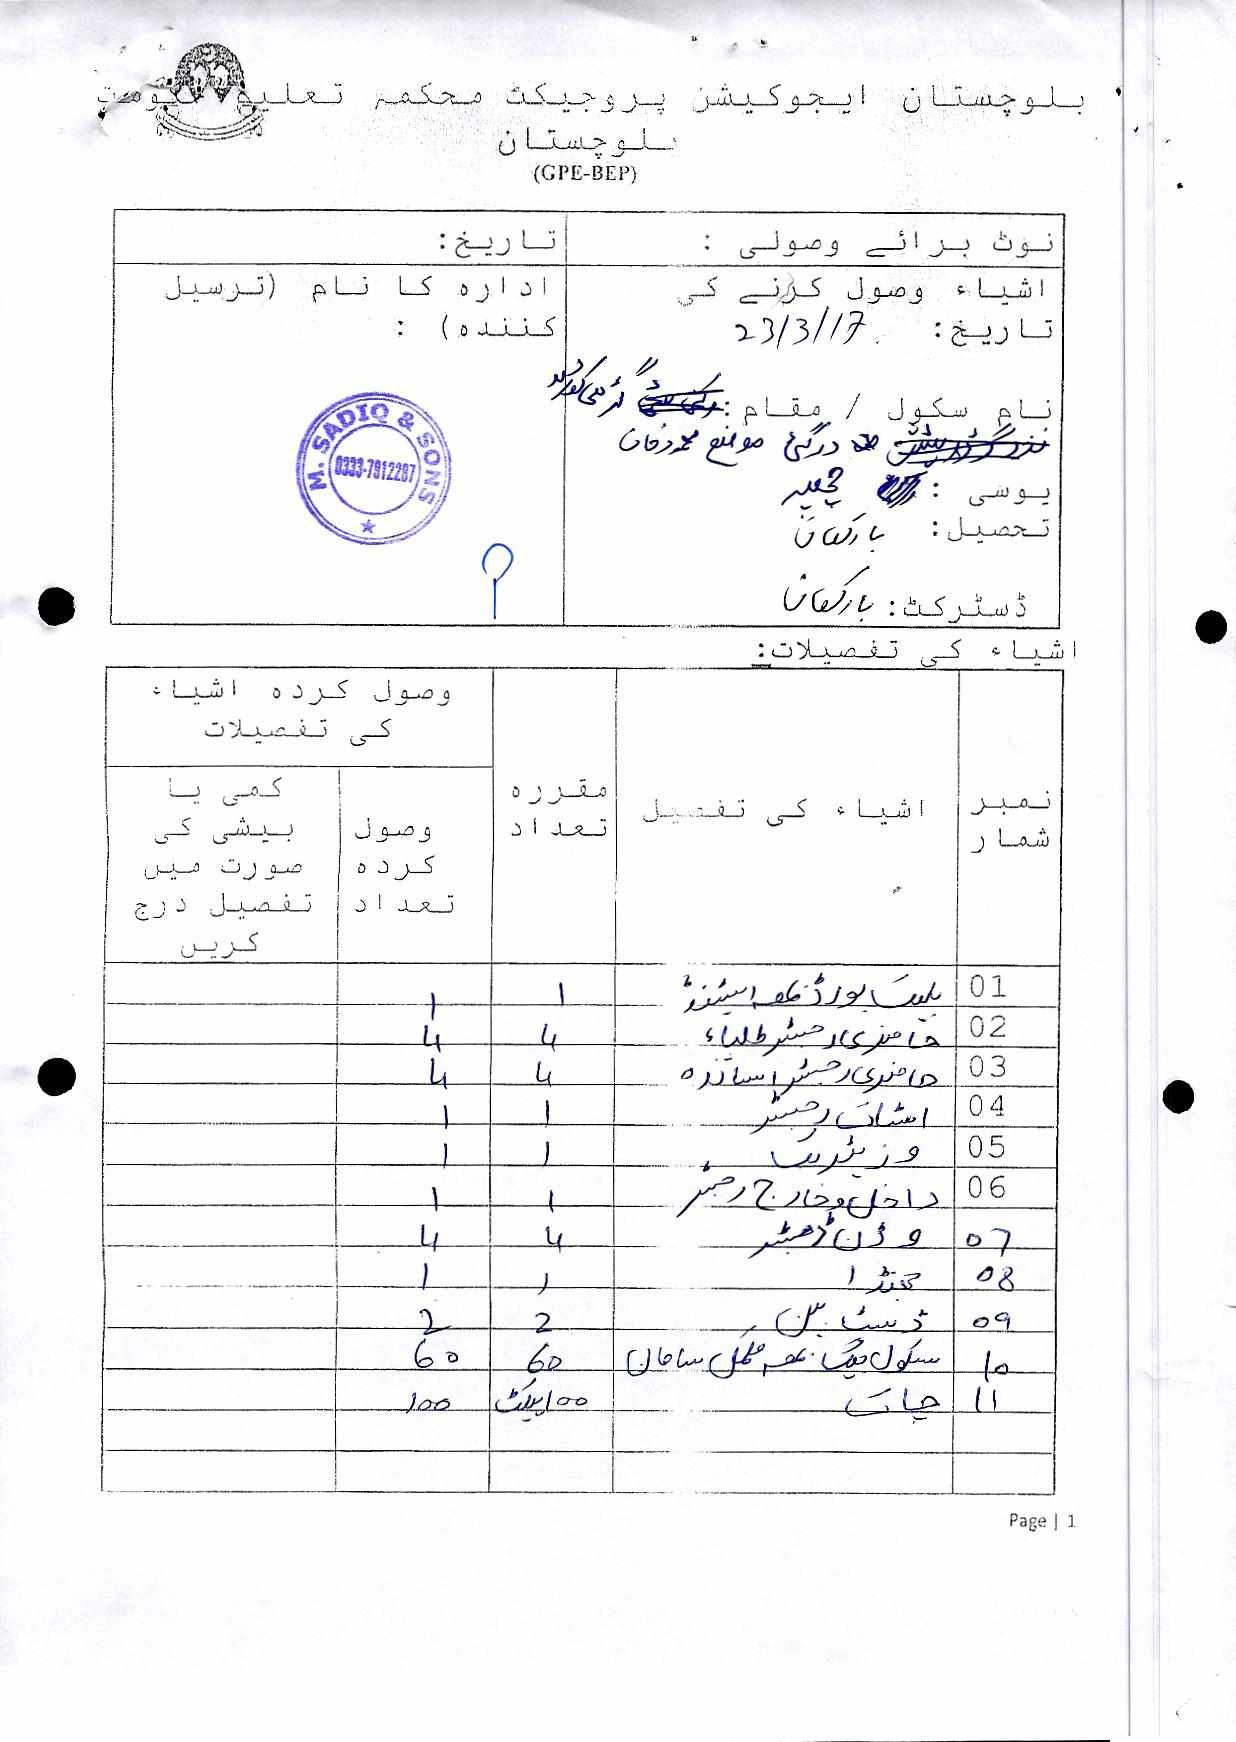 بلوچستان ایجوکیشن پروجیکٹ محکمہ تعلیم حکومت
بلوچستان
(GPE-BEP)
نوٹ برائے وصولی :
تاریخ:
اشیاء وصول کرنے کی
تاریخ: 23/3/17
ادارہ کا نام (ترسیل
کنندہ) :
M. SADIQ & SONS
0333-7912287
نام سکول / مقام:
درگئی موضع محمد خان
یوسی :
تحصیل: بارکھان
ڈسٹرکٹ: بارکھان
اشیاء کی تفصیلات:
نمبر شمار
اشیاء کی تفصیل
مقررہ تعداد
وصول کردہ اشیاء کی تفصیلات
وصول کردہ تعداد
کمی یا بیشی کی صورت میں تفصیل درج کریں
01 بلیک بورڈ بمعہ اسٹینڈ 1 1
02 حاضری رجسٹر طلباء 4 4
03 حاضری رجسٹر اساتذہ 4 4
04 اسٹاک رجسٹر 1 1
05 وزیٹر بک 1 1
06 داخل و خارج رجسٹر 1 1
07 4 4
08 جھنڈا 1 1
09 ڈسٹ بن 2 2
10 سکول بیگ بمعہ مکمل سامان 60 60
11 چاک 100 پیکٹ 100
Page | 1